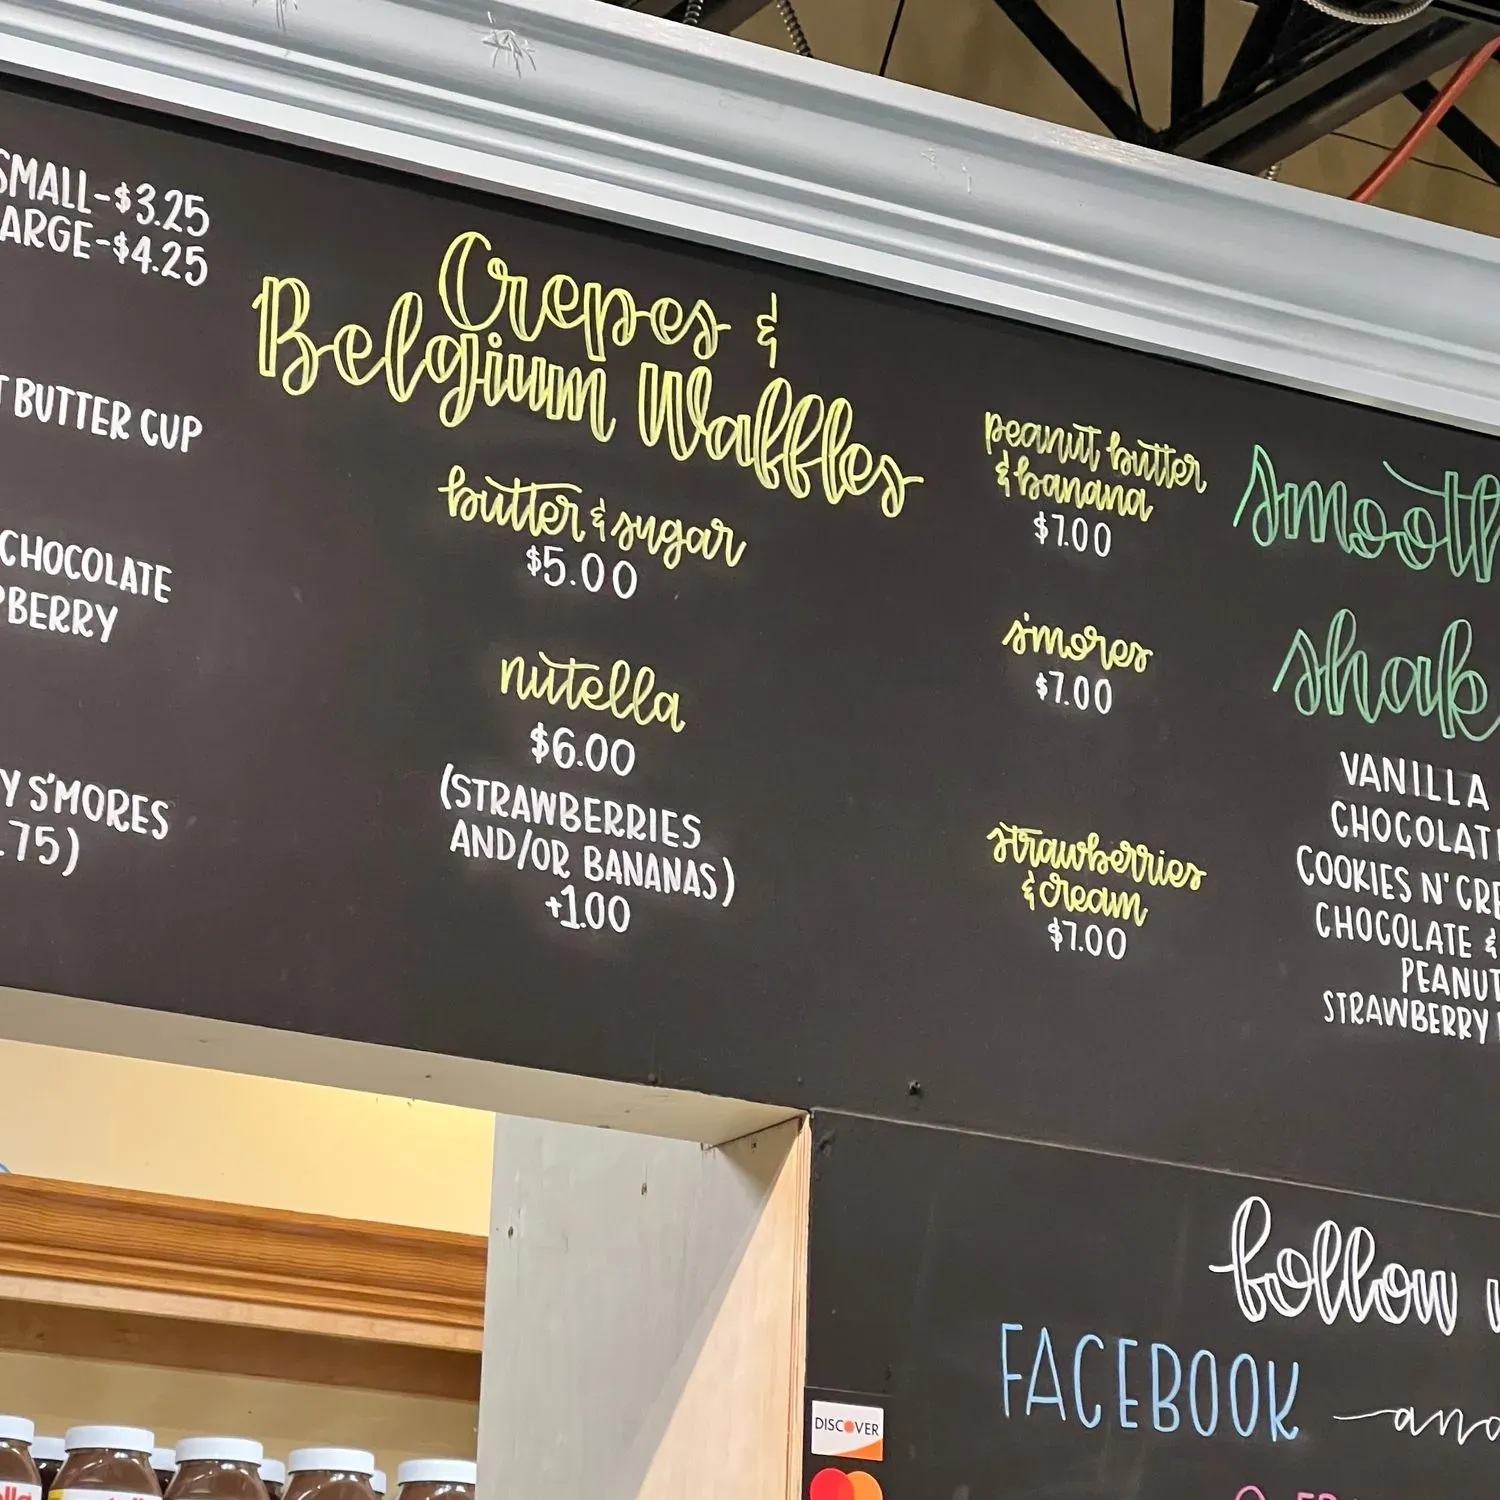 SMALL-$3.25
ARGE-$4.25
BUTTER CUP
CHOCOLATE
BERRY
Y S'MORES
.75)
Crepes &
Belgium Waffles
butter & sugar
$5.00
nutella
$6.00
(STRAWBERRIES
AND/OR BANANAS)
+1.00
peanut butter
& banana
$7.00
s'mores
$7.00
strawberries
& cream
$7.00
smooth
shak
VANILLA
CHOCOLAT
COOKIES N' CRE
CHOCOLATE &
PEANUT
STRAWBERRY
follow
FACEBOOK
and
DISCOVER